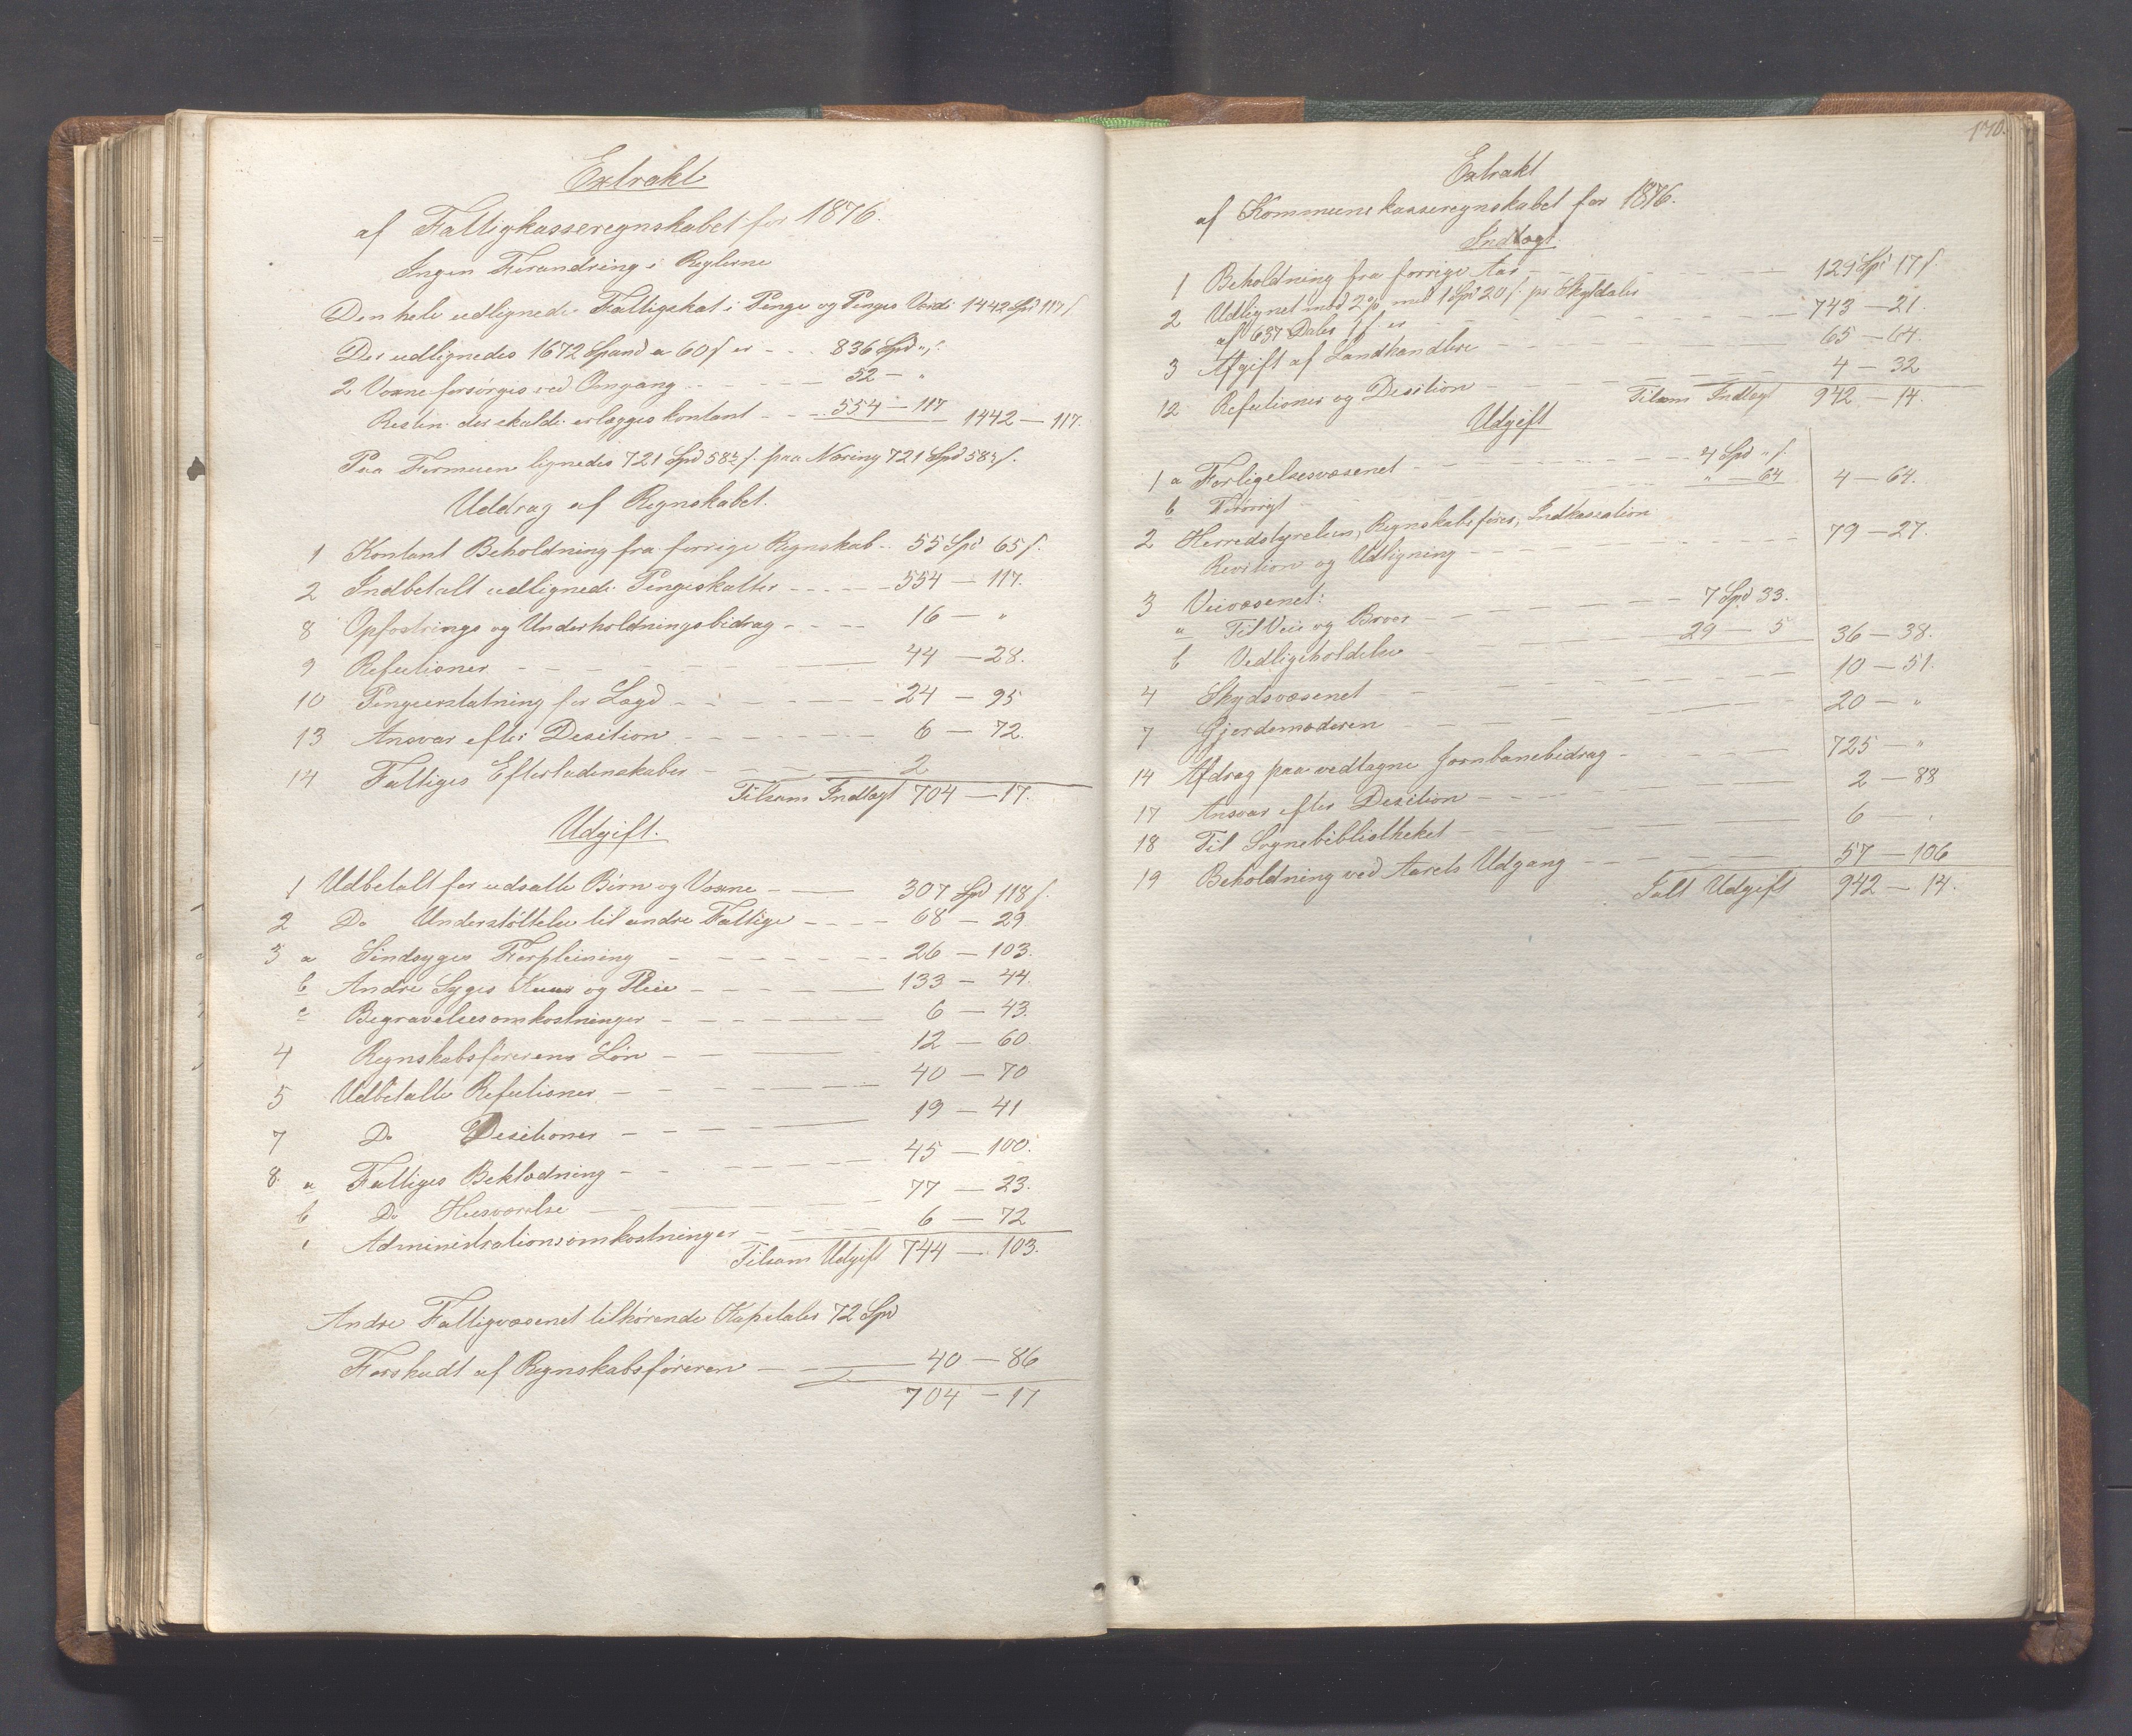 Extrakt
af Fattigkasseregnskabet for 1876.
Ingen Forandring i Reglerne
Den hele udlignede Fattigskat i Penge og Penges Værdi 1442 Spd 117 ſ
Der udlignedes 1672 Spand a 60 ſ er - - - 836 Spd „ ſ.
2 Voxne forsørges ved Omgang - - - - - 52 — „
Resten der skulde erlægges kontant - - - 554 — 117 1442 — 117.
Paa Formuen lignedes 721 Spd 58½ ſ. paa Næring 721 Spd 58½ ſ.
Uddrag af Regnskabet.
1 Kontant Beholdning fra forrige Regnskab - - 55 Spd 65 ſ.
2 Indbetalt udlignede Pengeskatter - - - - - 554 — 117.
8 Opfostrings og Underholdningsbidrag - - - - 16 — „
9 Refutioner - - - - - 44 — 28.
10 Pengeerstatning for Lægd - - - - - 24 — 95
13 Ansvar efter Desition - - - - - 6 — 72.
14 Fattiges Efterladenskaber - - - 2
Tilsam Indtægt 704 — 17.
Udgift.
1 Udbetalt for udsatte Børn og Voxne - — 307 Spd 118 ſ.
2 Do Understøttelse til andre Fattige - - - - 68 — 29
3 a Sindsyges Forpleining - - - - - 26 — 103.
b Andre Syges Kuur og Pleie - - - - - 133 — 44.
c Begravelsesomkostninger - - - - - 6 — 43.
4 Regnskabsførerens Løn - - - - 12 — 60.
5 Udbetalte Refutioner - - - - - 40 — 70
7 Do Desitioner - - - - - 19 — 41
8 a Fattiges Beklædning - - - - - 45 — 100.
b Do Husværelse - - - - - 77 — 23.
c Administrationsomkostninger - - - - - 6 — 72
Tilsam Udgift 744 — 103.
Andre Fattigvæsenet tilhørende Kapitaler 72 Spd
Forskudt af Regnskabsføreren - - - 40 — 86
704 — 17
170.
Extrakt
af Kommunekasseregnskabet for 1876.
Indtægt
1 Beholdning fra forrige Aar - - - - - 129 Spd 17 ſ.
2 Udlignet med 1 Spd 20 ſ. pr Skylddaler
af 637 Daler er - - - - - 743 — 21.
3 Afgift af Landhandlere - - - - - 65 — 64.
12 Refutioner og Desition - - - - - 4 — 32
Tilsam Indtægt 942 — 14.
Udgift
1 a Forligelsesvæsenet - - - - - 4 Spd „ ſ.
b Forøvrigt - - - „ — 64 4 — 64.
2 Herredstyrelsen, Regnskabsføres, Indkassation
Revition og Udligning - - - - - 79 — 27.
3 Veivæsenet:
a Til Veie og Broer - - - - - 7 Spd 33.
b Vedligeholdelse - - - - - 29 — 5 36 — 38.
4 Skydsvæsenet - - - - - 10 — 51.
7 Gjordemoderen - - - - - 20 — „
14 Afdrag paa vedtagne Jernbanebidrag - - - - - 725 — „
17 Ansvar efter Desition - - - - - 2 — 88
18 Til Sognebibliotheket - - - - - 6 — „
19 Beholdning ved Aarets Udgang - - - - - 57 — 106
Salt Udgift 942 — 14.